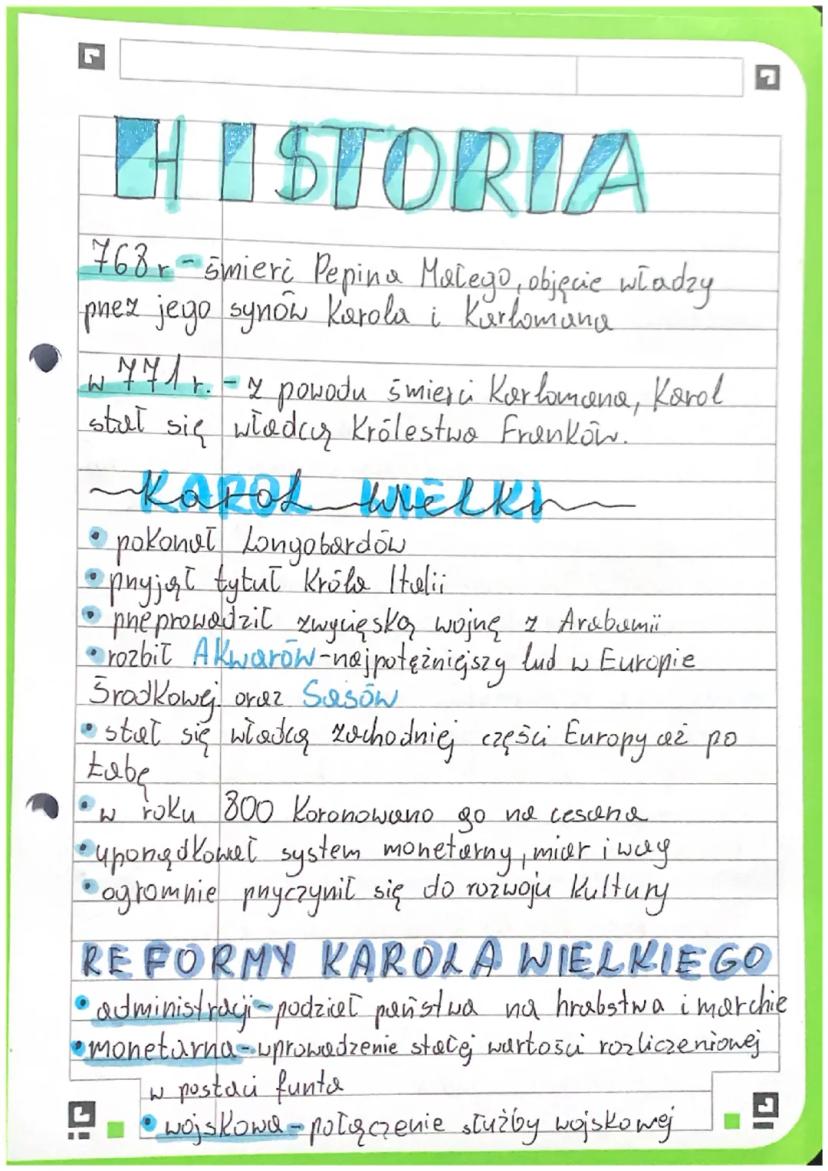 HISTORIA
768 r - śmierć Pepina Małego, objęcie władzy
przez jego synów Karola i Karlomana
w 771 r. - z powodu śmierci Karlomana, Karol
stał się władcą Królestwa Franków.
KAROL WIELKI
• pokonał Longobardów
• przyjął tytuł Króla Italii
• przeprowadził zwycięską wojnę z Arabamii
• rozbił Akwarów - najpotężniejszy lud w Europie
Środkowej oraz Sasów
• stał się władcą zachodniej części Europy aż po
Łabę
• w roku 800 Koronowano go na cesarza
• uporządkował system monetarny, miar i wag
• ogromnie przyczynił się do rozwoju Kultury
REFORMY KAROLA WIELKIEGO
• administracji - podział państwa na hrabstwa i marchie
• monetarna - wprowadzenie stałej wartości rozliczeniowej
w postaci funta
• wojskowa - połączenie służby wojskowej